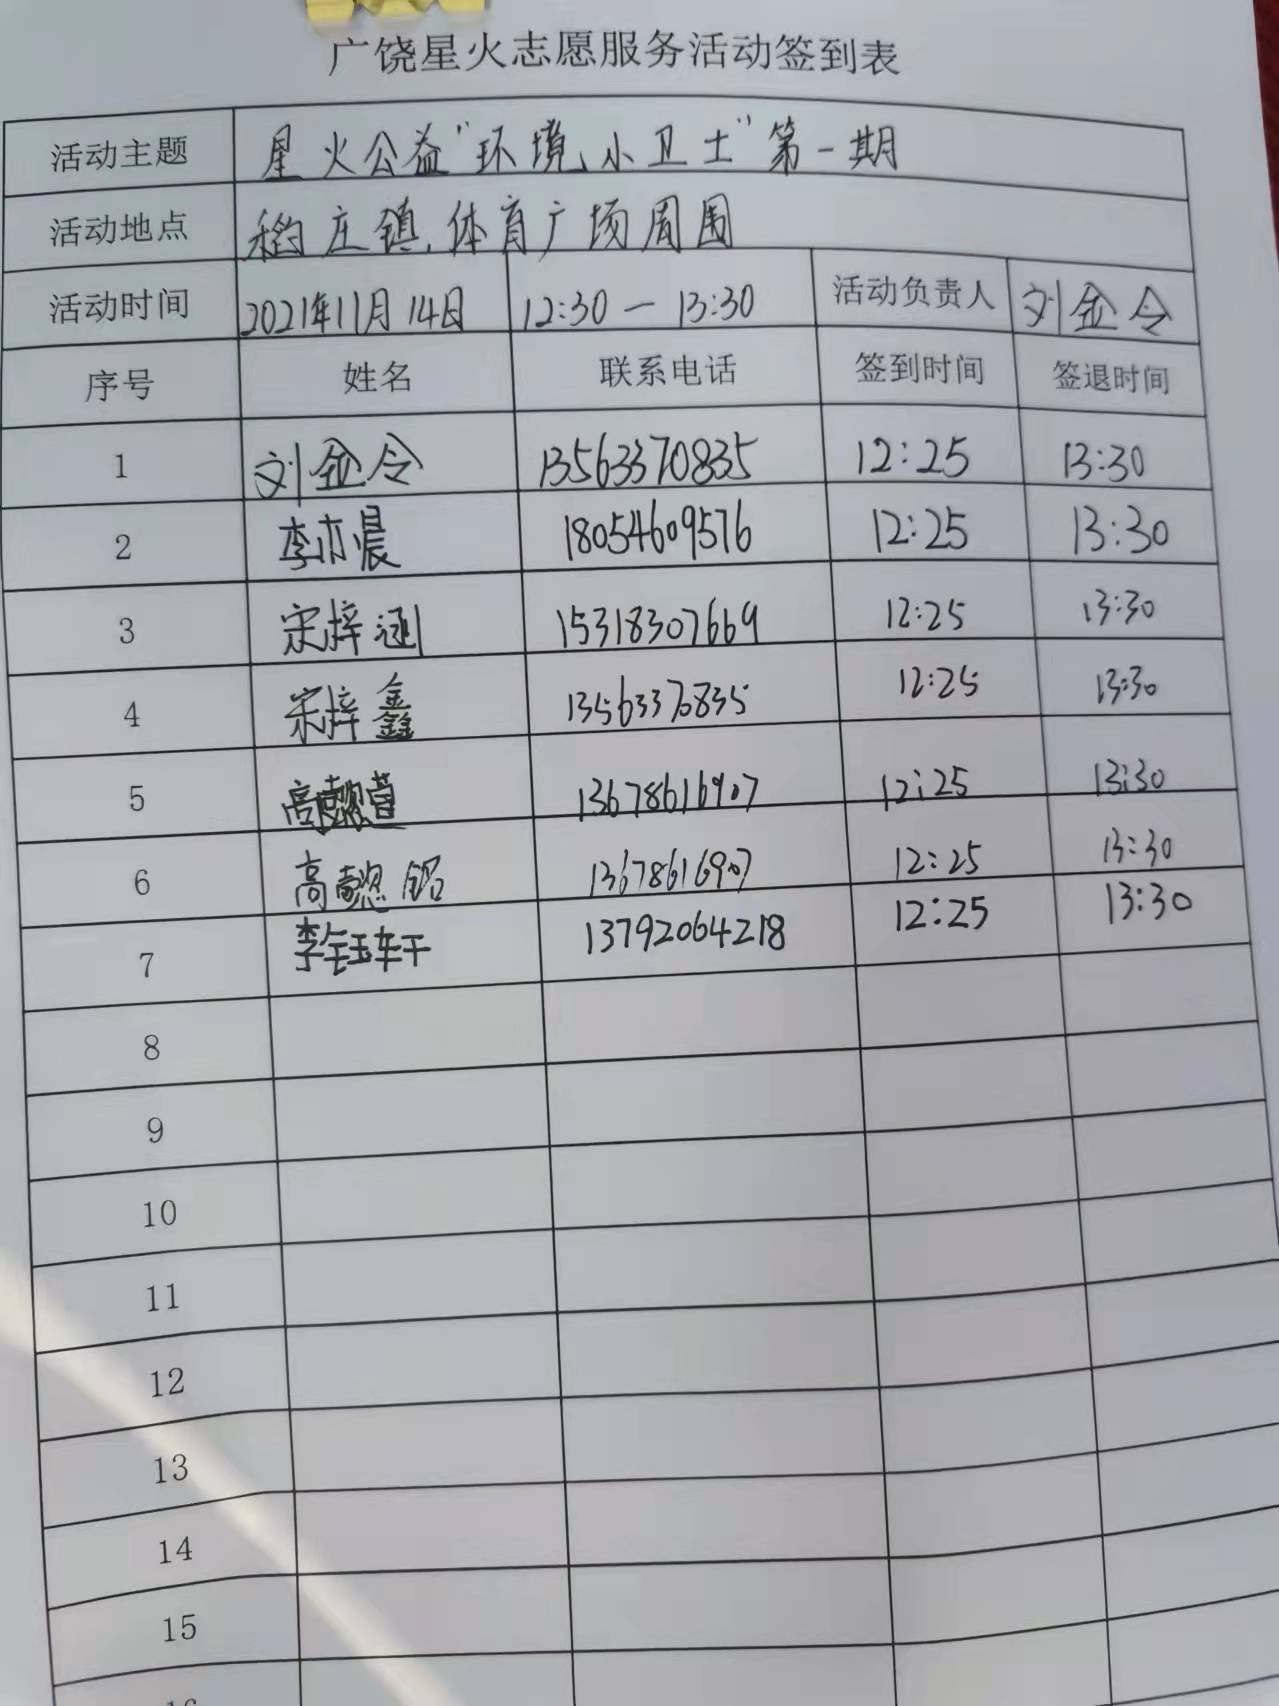 广饶星火志愿服务活动签到表
活动主题 星火公益"环境小卫士"第一期
活动地点 稻庄镇体育广场周围
活动时间 2021年11月14日 12:30一13:30 活动负责人 刘金令
序号 姓名 联系电话 签到时间 签退时间
1 刘金令 13563370835 12:25 13:30
2 李亦晨 18054609576 12:25 13:30
3 宋梓涵 15318307669 12:25 13:30
4 宋梓鑫 13563370835 12:25 13:30
5 高懿萱 13678616907 12:25 13:30
6 高懿铭 13678616907 12:25 13:30
7 李钰轩 13792064218 12:25 13:30
8
9
10
11
12
13
14
15
16